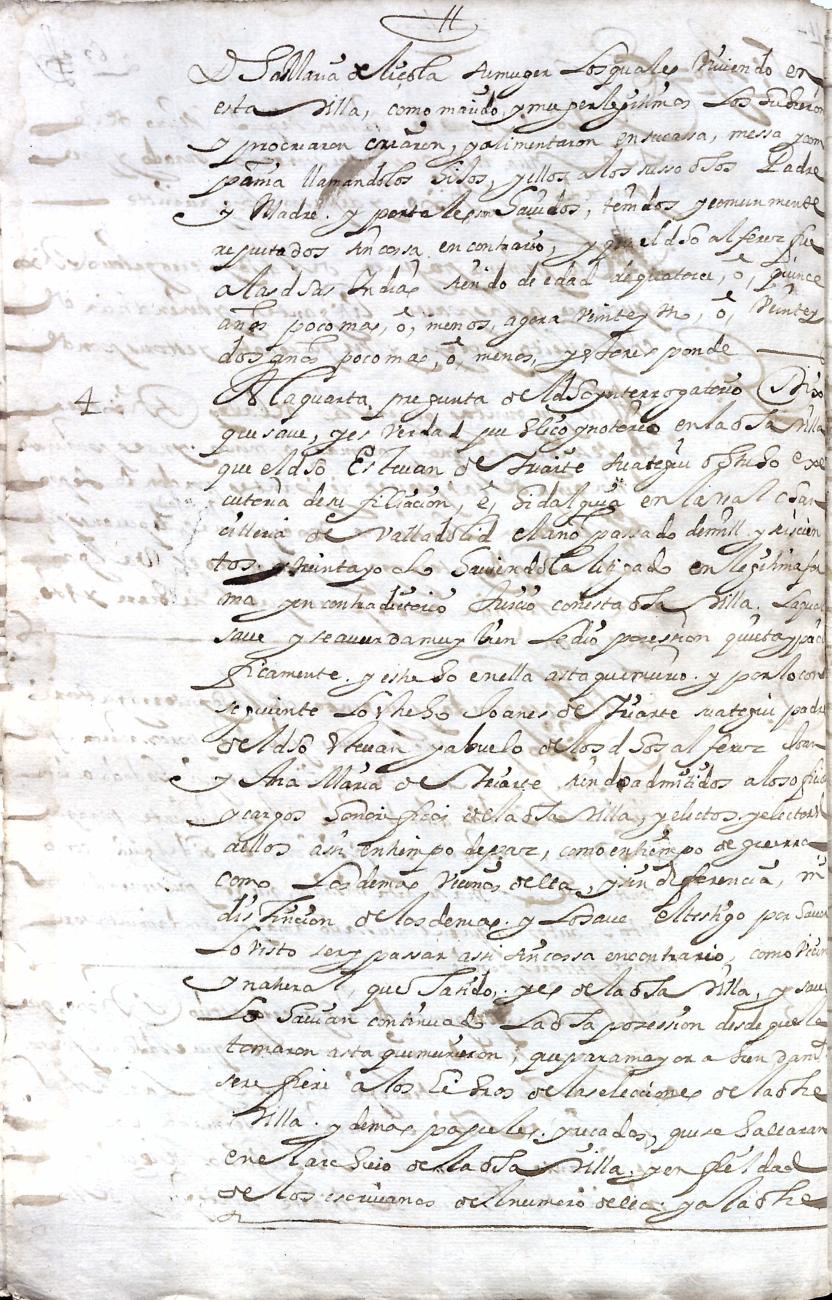 Dha Maria de licola su muger los quales viviendo en
esta Villa, como marido y muger legitimos los huvieron
y procrearon criaron, y alimentaron en su cassa, messa y com
pañia llamandolos hijos, y ellos a los susso dhos Padre
y Madre. y por tales son havidos, tenidos y comunmente
reputados sin cossa en contrario, y que el dho alferez fue
a las dhas Indias siendo de edad de quatorce, o, quince
años poco mas, o, menos, agora veinte y un, o, veinte y
dos años poco mas, o, menos, y esto responde
4 A la quarta pregunta del dho ynterrogatorio Dixo
que save, y es verdad publico y notorio en la dha Villa
que el dho Estevan de Iriarte suategui obtubo exe
cutoria de su filiacion, e, hidalguia en la real chan
cilleria de Valladolid el año passado de mill y seiscien
tos y treinta y ocho haviendola litigado en legitima for
ma y en contradictorio Juicio con esta dha Villa. la qual
save y se acuerda muy bien le dio posession quieta y paci
ficamente. y estubo en ella asta que murio. y por lo con
seguiente lo estubo Joanes de Iriarte suategui padre
del dho Estevan y abuelo de los dhos alferez Joan
y Ana Maria de Iriarte siendo admitidos a los oficios
y cargos honorificos de la dha Villa, y electos y electores
dellos assi en tiempo de paz, como en tiempo de guerra
como los demas vecinos della, y sin diferencia, ni
distincion de los demas. y lo save el testigo por haver
lo visto ser y passar assi sin cossa en contrario, como vecino
y natural, que ha sido, y es de la dha Villa, y save
lo havian continuado la dha posession desde que la
tomaron asta que murieron, que para mayor abundami
se refiere a los libros de las elecciones de la dha
Villa. y demas papeles. y recados, que se hallaran
en el archivio de la dha Villa, y en fieldad
de los escrivanos del numero della y a la dha